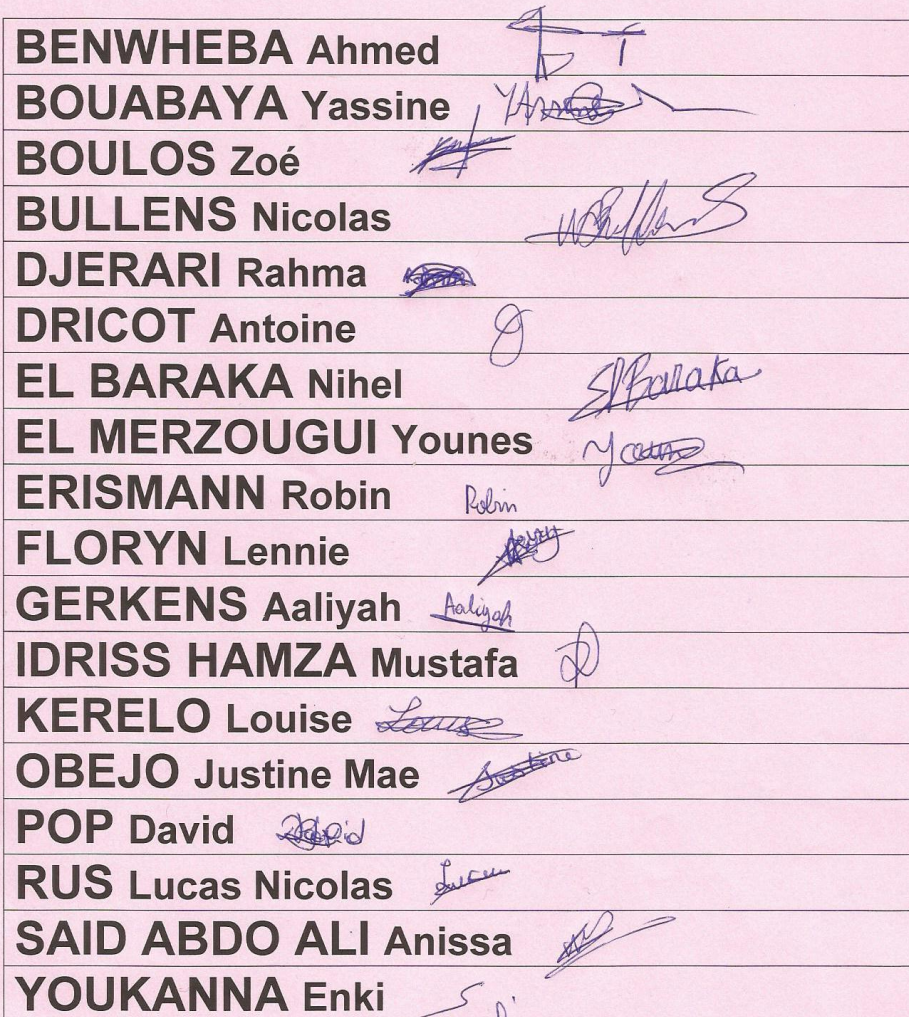 BENWHEBA Ahmed
BOUABAYA Yassine
BOULOS Zoé
BULLENS Nicolas
DJERARI Rahma
DRICOT Antoine
EL BARAKA Nihel El Baraka
EL MERZOUGUI Younes
ERISMANN Robin Robin
FLORYN Lennie
GERKENS Aaliyah Aaliyah
IDRISS HAMZA Mustafa
KERELO Louise Louise
OBEJO Justine Mae Justine
POP David
RUS Lucas Nicolas
SAID ABDO ALI Anissa
YOUKANNA Enki